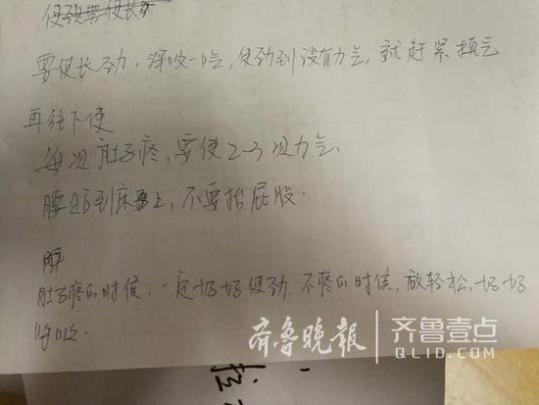 要使长劲，深吸一口气，使劲到没有力气，就赶紧换气
再往下使
每次肚子疼，要使2-3次力气、
腰贴到床上，不要抬屁股．
肚子疼的时候，一定好好使劲．不疼的时候，放轻松，好好
呼吸．
齐鲁晚报
齐鲁壹点
QLID.COM